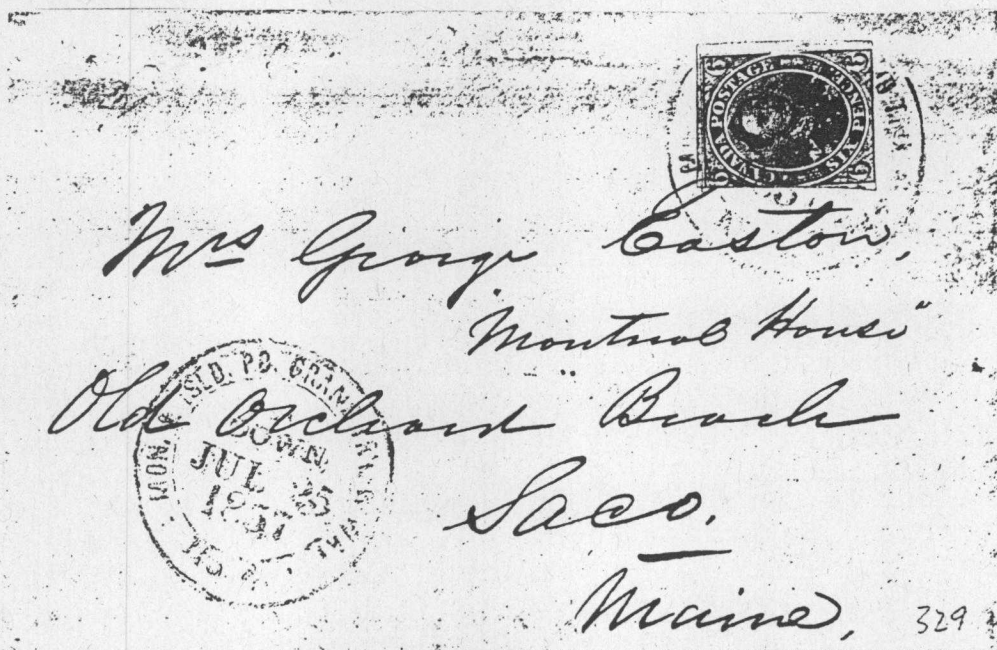 CANADA POSTAGE
SIX PENCE
6 6 6 6
Mrs George Easton,
"Montreal House"
Old Orchard Beach
Saco.
Maine,
ISLD. P.O. GRAN
DOWN
JUL 25
1857
329